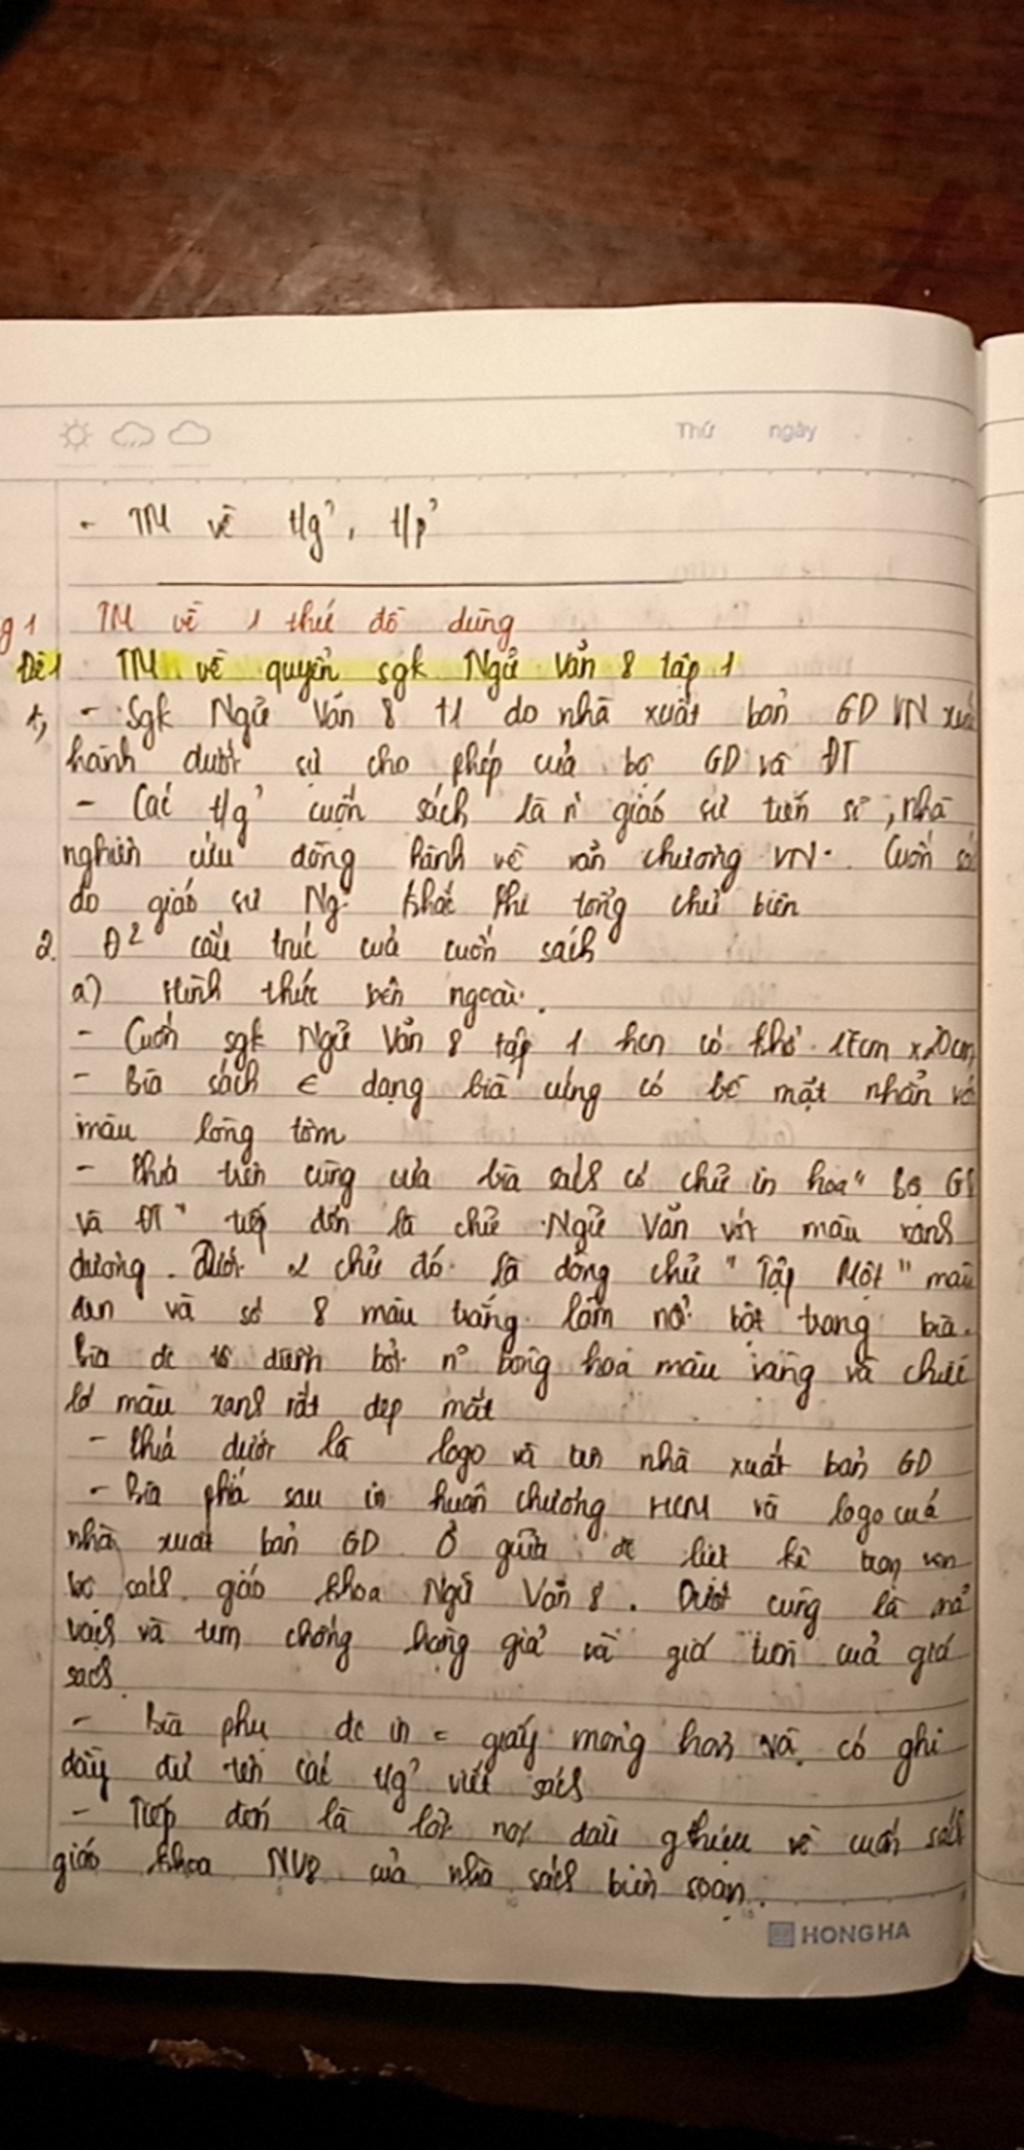 Thứ ngày
- TM về t/g', t/p'
g 1 TM về 1 thứ đồ dùng
Đề 1 TM về quyển sgk Ngữ Văn 8 tập 1
1, - Sgk Ngữ Văn 8 t1 do nhà xuất bản GD VN xuấ
hành dưới sự cho phép của bộ GD và ĐT
- Các t/g' cuốn sách là n' giáo sư tiến sĩ, nhà
nghiên cứu đồng hành về văn chương VN. Cuốn sá
do giáo sư Ng. Khắc Phi tổng chủ biên
2. Đ² cấu trúc của cuốn sách
a) Hình thức bên ngoài.
- Cuốn sgk Ngữ Văn 8 tập 1 hcn có khổ 17cm x 20cm
- Bìa sách dạng bìa cứng có bề mặt nhẵn và
màu lòng tôm
- Phía trên cùng của bìa sách có chữ in hoa "Bộ GD
và ĐT" tiếp đến là chữ Ngữ Văn với màu xanh
dương. Dưới 2 chữ đó là dòng chữ "Tập Một" màu
đen và số 8 màu trắng làm nổi bật trang bìa.
Bìa đc tô bởi n° bông hoa màu vàng và chiếc
lá màu xanh rất đẹp mắt
- Phía dưới là logo và tên nhà xuất bản GD
- Bìa phía sau in huân chương HCM và logo của
nhà xuất bản GD. Ở giữa đc liệt kê trọn vẹn
bộ sách giáo khoa Ngữ Văn 8. Dưới cùng là mã
vạch và tem chống hàng giả và giá tiền của
sách
- Bìa phụ đc in = giấy mỏng hơn và có ghi
đầy đủ tên các t/g' viết sách
- Tiếp đến là lời nói đầu gthiệu về cuốn sách
giáo khoa NV8 của nhà sách biên soạn.
HONG HA